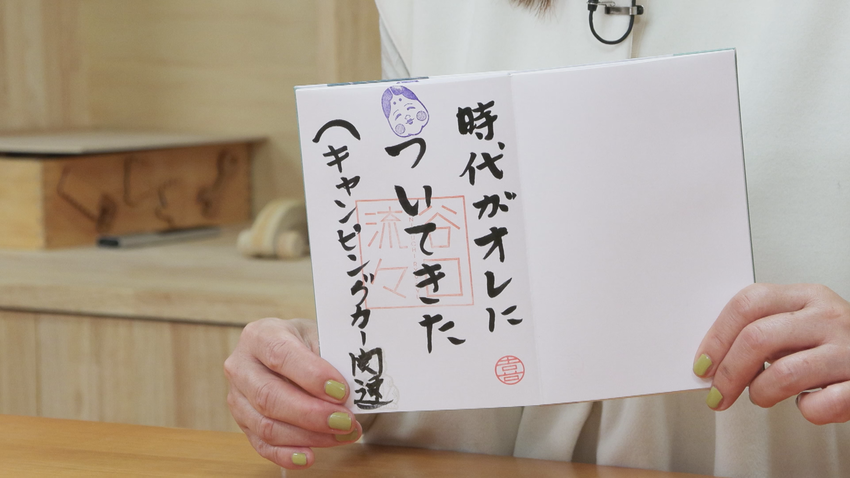 時代がオレに
ついてきた
(キャンピングカー関連
谷口
流々